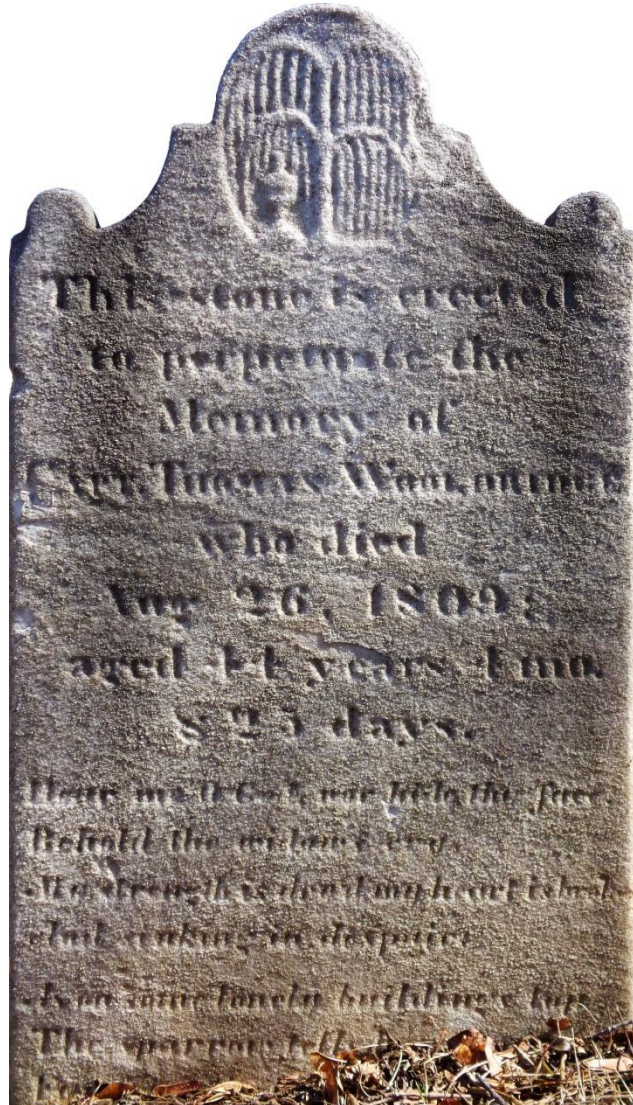 This stone is erected
to perpetuate the
Memory of
CAPT. THOMAS WOOLDRIDGE
who died
Aug 26, 1809;
aged 44 years, 4 mo.
& 25 days.
Hear me O God, nor hide thy face,
Behold the widow's cry,
My strength is dead my heart is
sinking in despair;
As on some lonely building's top
The sparrow tells